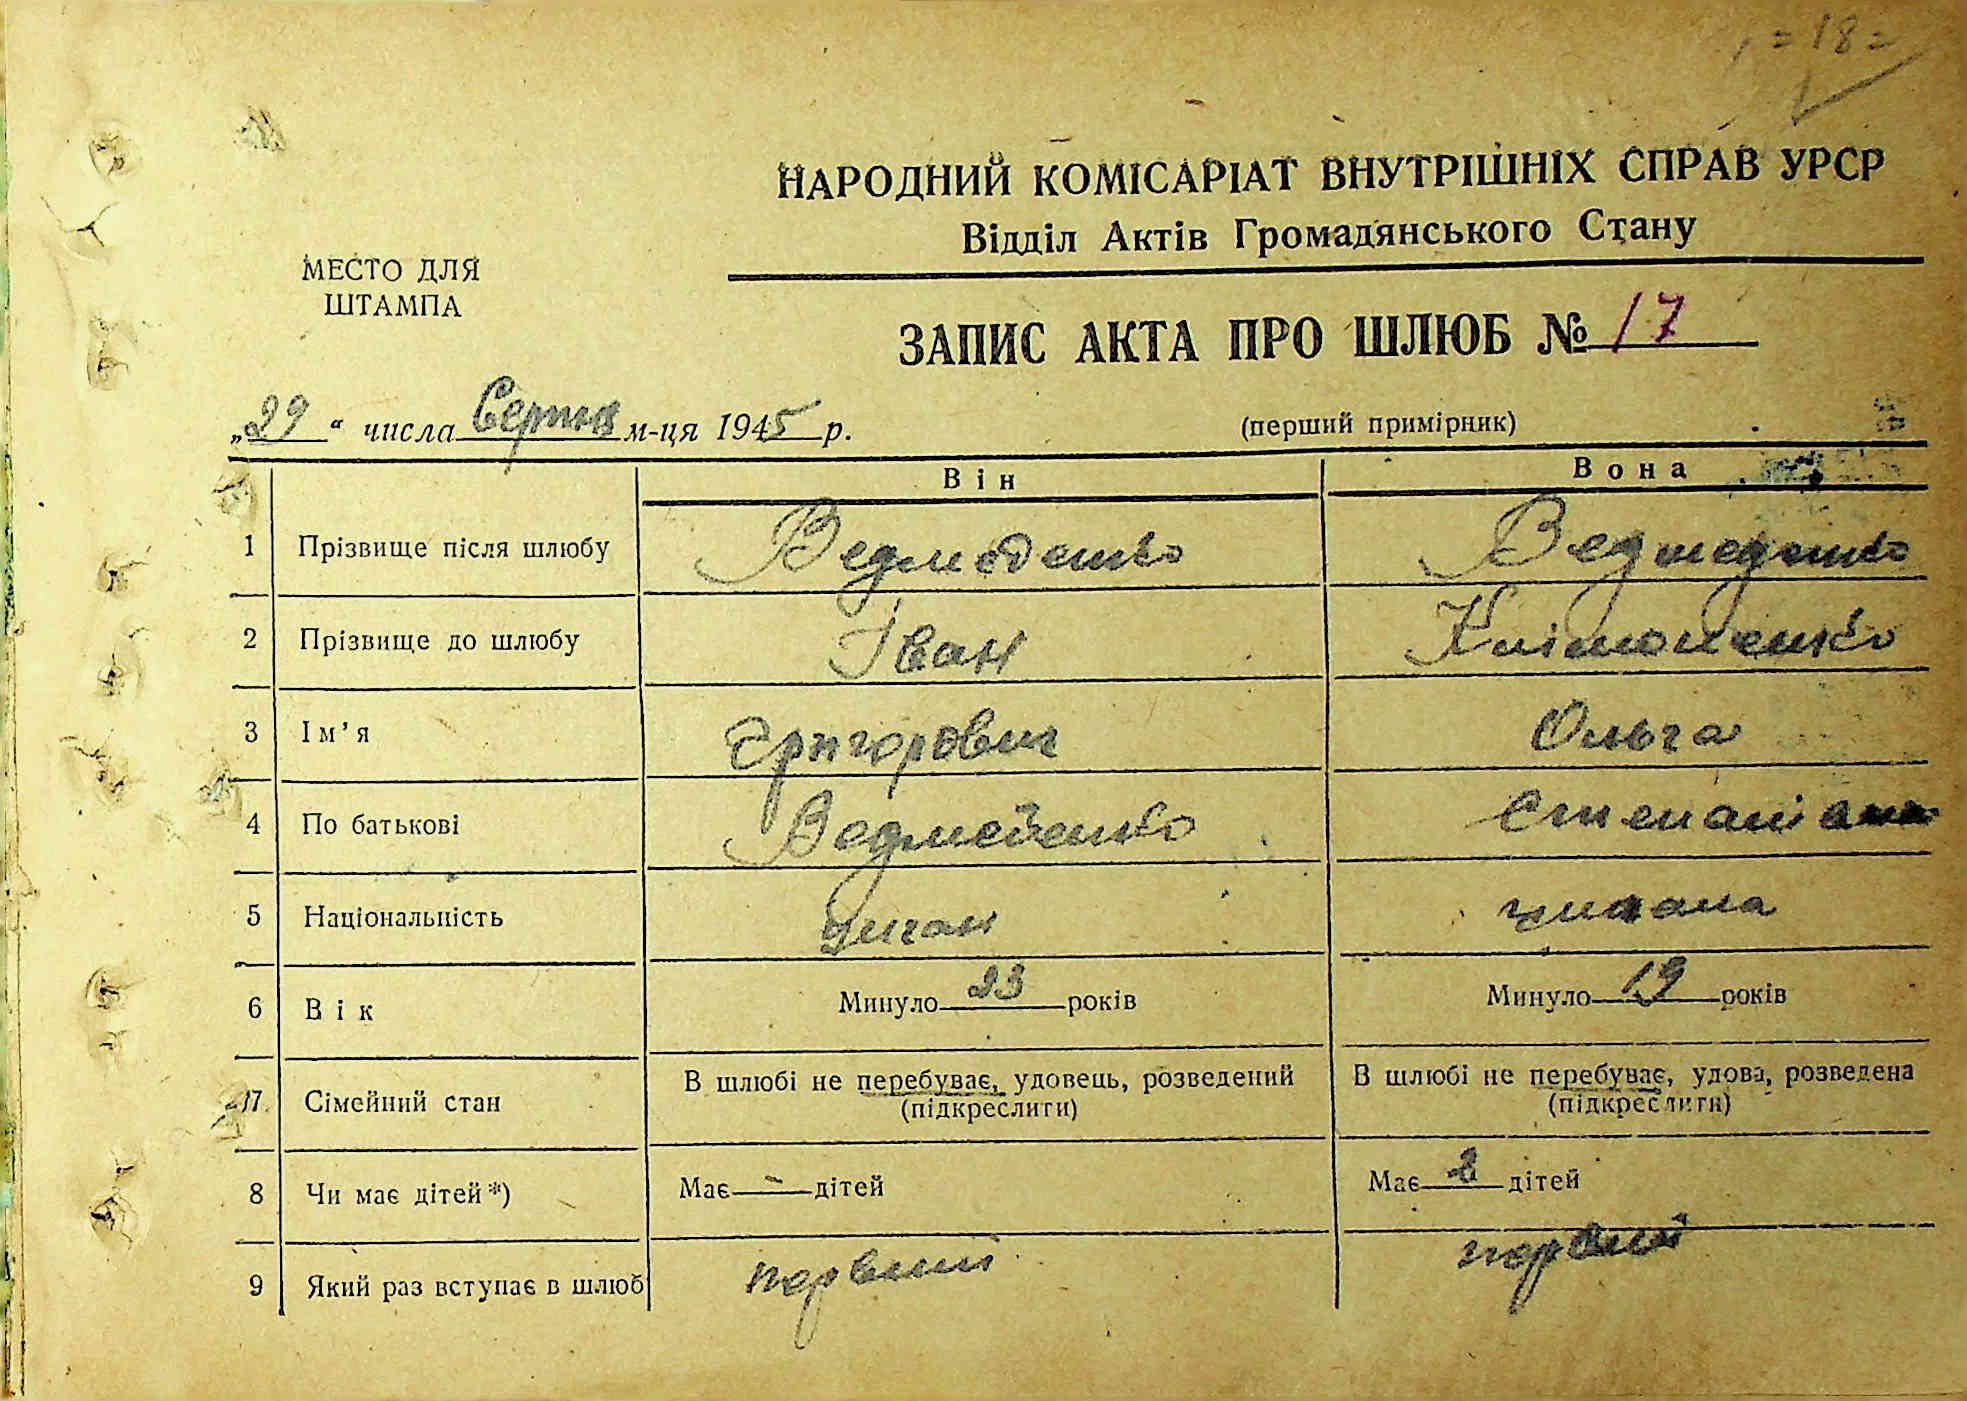 = 18 =
НАРОДНИЙ КОМІСАРІАТ ВНУТРІШНІХ СПРАВ УРСР
Відділ Актів Громадянського Стану
МЕСТО ДЛЯ
ШТАМПА
ЗАПИС АКТА ПРО ШЛЮБ № 17
„29“ числа Серпня м-ця 1945 р.
(перший примірник)
Він Вона
1 Прізвище після шлюбу Ведмеденко Ведмеденко
2 Прізвище до шлюбу Іван Клімоненко
3 Ім’я Григорович Ольга
4 По батькові Ведмеденко
5 Національність циган
6 Вік Минуло 23 років Минуло 19 років
7 Сімейний стан В шлюбі не перебуває, удовець, розведений В шлюбі не перебуває, удова, розведена
(підкреслити) (підкреслити)
8 Чи має дітей*) Має - дітей Має 2 дітей
9 Який раз вступає в шлюб первший первший